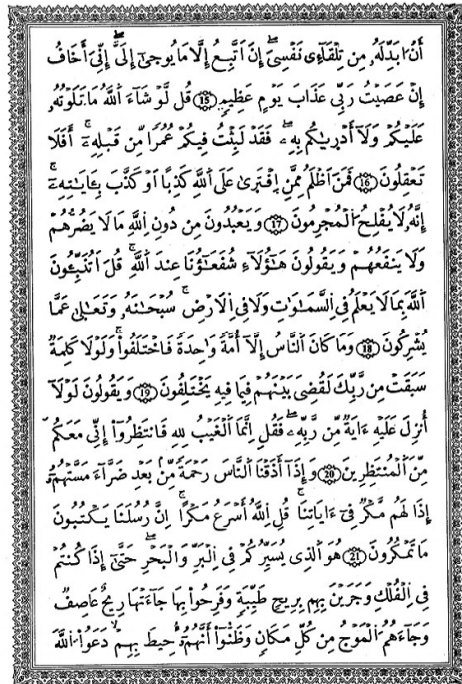 أَنُ ا۟بَدِّلَهُۥ مِن تِلْقَآءِے نَفْسِيَ إِنَ اَتَّبِعُ إِلَّا مَا يُوحَىٰٓ إِلَيَّ إِنِّيَ أَخَافُ
إِنْ عَصَيْتُ رَبِّي عَذَابَ يَوْمٍ عَظِيمٍ 15 قُل لَّوْ شَآءَ اَللَّهُ مَا تَلَوْتُهُۥ
عَلَيْكُمْ وَلَآ أَدْر۪ىٰكُم بِهِۦ فَقَدْ لَبِثْتُ فِيكُمْ عُمُرًا مِّن قَبْلِهِۦٓ أَفَلَا
تَعْقِلُونَ 16 فَمَنَ اَظْلَمُ مِمَّنِ اِفْتَر۪ىٰ عَلَى اَللَّهِ كَذِبًا اَوْ كَذَّبَ بِـَٔايَـٰتِهِۦٓ
إِنَّهُۥ لَا يُفْلِحُ اُلْمُجْرِمُونَ 17 وَيَعْبُدُونَ مِن دُونِ اِللَّهِ مَا لَا يَضُرُّهُمْ
وَلَا يَنفَعُهُمْ وَيَقُولُونَ هَـٰٓؤُلَآءِ شُفَعَـٰٓؤُنَا عِندَ اَللَّهِ قُلَ اَتُنَبِّـُٔونَ
اَللَّهَ بِمَا لَا يَعْلَمُ فِي اِلسَّمَـٰوَٰتِ وَلَا فِي اِلَارْضِ سُبْحَـٰنَهُۥ وَتَعَـٰلَىٰ عَمَّا
يُشْرِكُونَ 18 وَمَا كَانَ اَلنَّاسُ إِلَّآ أُمَّةً وَٰحِدَةً فَاخْتَلَفُواْ وَلَوْلَا كَلِمَةٌ
سَبَقَتْ مِن رَّبِّكَ لَقُضِيَ بَيْنَهُمْ فِيمَا فِيهِ يَخْتَلِفُونَ 19 وَيَقُولُونَ لَوْلَآ
أُنزِلَ عَلَيْهِ ءَايَةٌ مِّن رَّبِّهِۦ فَقُلِ اِنَّمَا اَلْغَيْبُ لِلهِ فَانتَظِرُوٓاْ إِنِّي مَعَكُم
مِّنَ اَلْمُنتَظِرِينَ 20 وَإِذَآ أَذَقْنَا اَلنَّاسَ رَحْمَةً مِّنۢ بَعْدِ ضَرَّآءَ مَسَّتْهُمُۥٓ
إِذَا لَهُم مَّكْرٌ فِےٓ ءَايَاتِنَا قُلِ اِللَّهُ أَسْرَعُ مَكْرًا اِنَّ رُسُلَنَا يَكْتُبُونَ
مَا تَمْكُرُونَ 21 هُوَ اَلَّذِي يُسَيِّرُكُمْ فِي اِلْبَرِّ وَالْبَحْرِ حَتَّىٰٓ إِذَا كُنتُمْ
فِي اِلْفُلْكِ وَجَرَيْنَ بِهِم بِرِيحٍ طَيِّبَةٍ وَفَرِحُواْ بِهَا جَآءَتْهَا رِيحٌ عَاصِفٌ
وَجَآءَهُمُ اُلْمَوْجُ مِن كُلِّ مَكَانٍ وَظَنُّوٓاْ أَنَّهُمُۥٓ أُحِيطَ بِهِمْ دَعَوُاْ اُللَّهَ